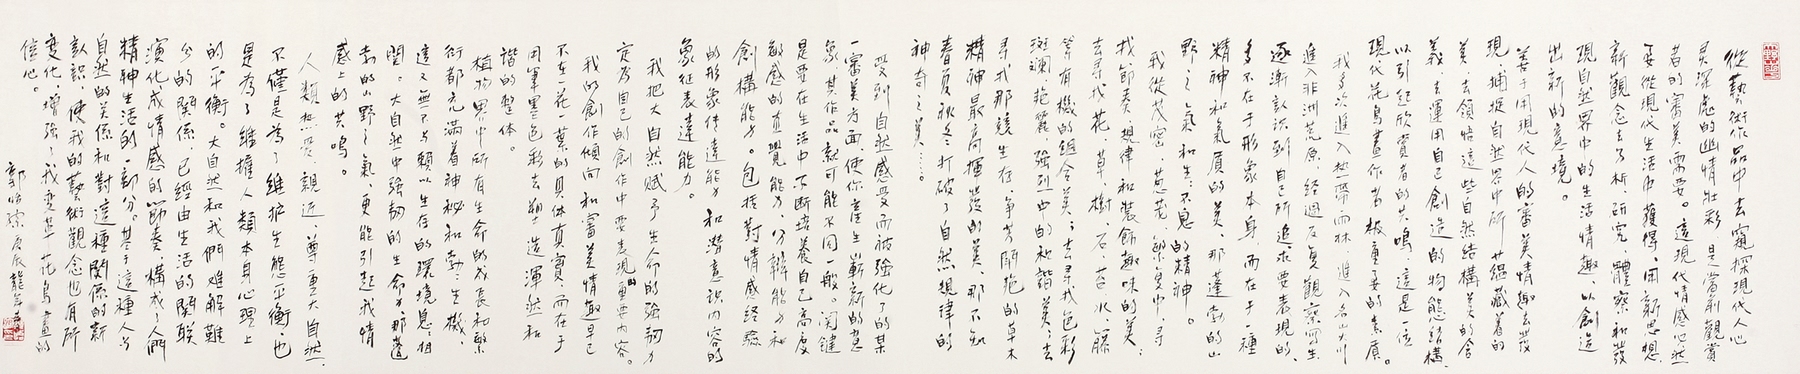 從藝術作品中去窺探現代人心
靈深處的幽情壯彩是當前觀賞
者的審美需要。這現代情感必然
要從現代生活中獲得，用新思想
新觀念去分析，研究，體察和發
現自然界中的生活情趣，以創造
出新的意境。
善于用現代人的審美情趣去發
現，捕捉自然界中所蘊藏着的
美，去領悟這些自然結構美的含
義，去運用自己創造的物態結構，
以引起欣賞者的共鳴，這是一位
現代花鳥畫作者极重要的素質。
我多次進入熱帶雨林，進入名山大川
進入非洲荒原，經過反復觀察寫生
逐漸認識到自己所追求要表現的，
多不在于形象本身，而在于一種
精神和氣質的美，那蓬勃的山
野之氣和生生不息的精神。
我從茂密，葱蘢，繁複中，尋
找節奏，規律和裝飾趣味的美；
去尋找花，草，樹，石，苔，水，藤
等有機的組合美；去尋找色彩
斑斕，艷麗，強烈中的和諧美；去
尋找那競生存，爭芳開艷的草木
精神最高揮發的美，那不知
春夏秋冬，打破了自然規律的
神奇之美……。
受到自然感受而被強化了的某
一審美方面，使你產生嶄新的意
象，其作品就可能不同一般。關鍵
是要在生活中不斷培養自己高度
敏感的直覺能力，分辨能力和
創構能力。包括對情感經驗
的形象傳達能力和潛意識內容的
象征表達能力。
我把大自然賦予生命的強韌力
定為自己的創作中要表現的重要內容。
我的創作傾向和審美情趣早已
不在一花一葉的具体真實，而在于
用筆墨色彩去塑造渾然和
諧的整体。
植物界中所有生命的成長和繁
衍都充滿着神秘和勃勃生機，
這又無不与賴以生存的環境息息相
關。大自然中強韌的生命力，那邁
去的山野之氣，更能引起我情
感上的共鳴。
人類熱愛，親近，尊重大自然，
不僅是為了維护生態平衡，也
是為了維擁人類本身心理上
的平衡。大自然和我們難解難
分的關係，已經由生活的關联
演化成情感的節奏，構成了人們
精神生活的一部分。基于這種人与
自然的關係和對這種關係的新
認識，使我的藝術觀念也有所
變化，增強了我變革花鳥畫的
信心。
郭怡孮庚辰龍年